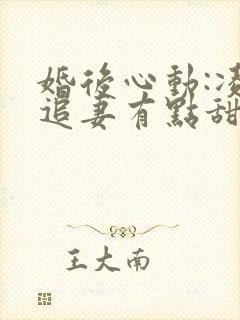 婚後心動:凌
追妻有點甜
王大南